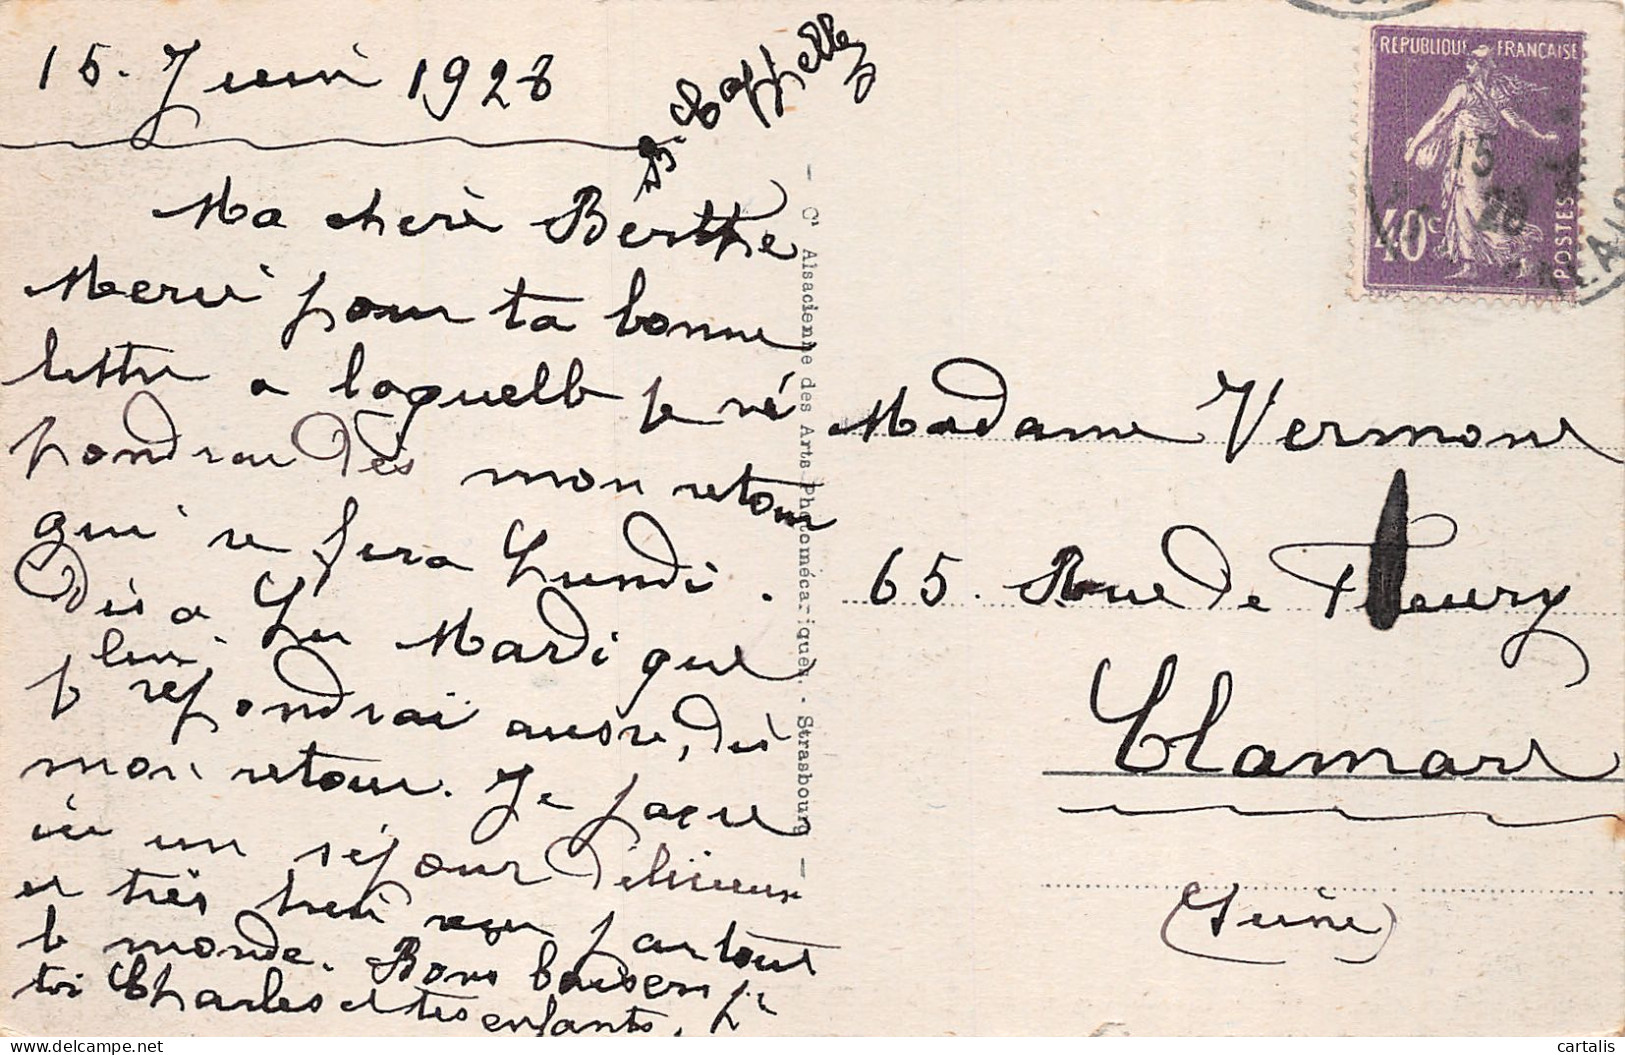 15. Juin 1928
Ma chere Berthe
Merci pour ta bonne
lettre a laquelle je ré
pondrai dès mon retour
qui se fera Lundi.
Dis a Lu Mardi que
je lui répondrai aussi, dès
mon retour. Je passe
ici un séjour délicieux
et très bien reçu par tout
le monde. Bons baisers pr
toi Charles et tes enfants.
- Cie Alsacienne des Arts Photomécaniques. - Strasbourg -
REPUBLIQUE FRANCAISE
40c
POSTES
15
28
Madame Vermont
65. Rue de Fleury
Clamart
(Seine)
cartalis